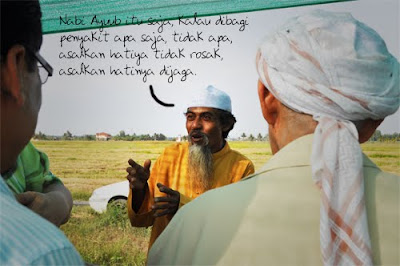 Nabi Ayub itu saja, kalau dibagi
penyakit apa saja, tidak apa,
asalkan hatiya tidak rosak,
asalkan hatinya dijaga.